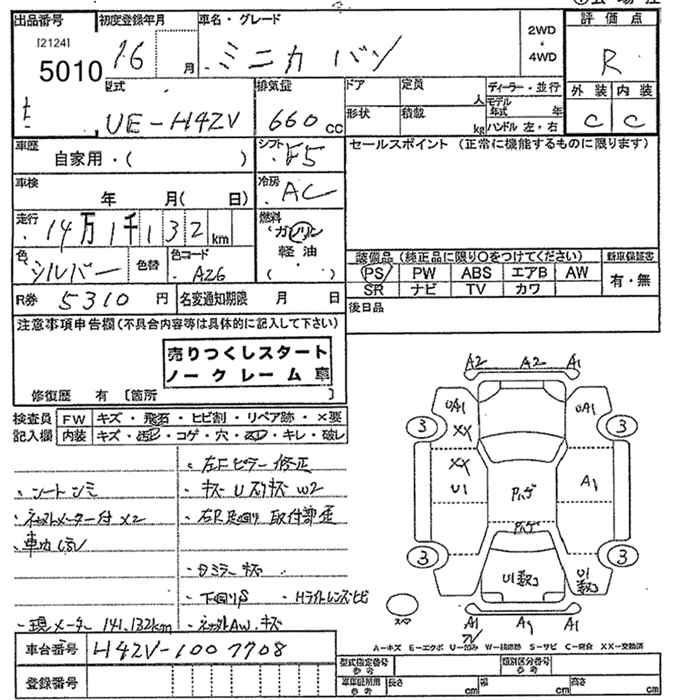 出品番号 初度登録年月 車名・グレード 2WD・4WD 評価点
[2124] 5010 16 月 ミニカ バン R
外装 内装
C C
型式 UE-H42V
排気量 660 CC
ドア 定員 人 ディーラー・並行
形状 積載 kg モデル年式 年
ハンドル 左・右
車歴 自家用・( )
シフト F5
セールスポイント (正常に機能するものに限ります)
車検 年 月( 日)
冷房 AC
走行 14万1千132km
燃料 ガソリン 軽油 ( ・ )
色 シルバー 色替 色コード A26
装備品 (純正品に限り○をつけてください) 新車保証書
PS PW ABS エアB AW 有・無
SR ナビ TV カワ
R券 5310 円 名変通知期限 月 日
後日品
注意事項申告欄(不具合内容等は具体的に記入して下さい)
売りつくしスタート
ノークレーム車
修復歴 有 〔箇所
検査員記入欄 FW キズ・飛石・ヒビ割・リペア跡・×要
内装 キズ・汚・コゲ・穴・・キレ・破レ
左Fピラー修正
シートシミ キズ U スリキズ W2
メーター付 X2 右R足廻り 取付部歪
ミラー キズ
下回りS ・Hライトレンズヒビ
現メーター 141,132km AW キズ
A2 A2 A1
UA1 UA1
3 XX 3
XX
U1 A1
3 3
U1
A1 A9 A1
スペア
A-キズ E-エクボ U-凹み W-補修跡 S-サビ C-腐食 XX-交換済
車台番号 H42V-1007708
登録番号
型式指定番号 参考 類別区分番号 参考
車車証所用 参考 長さ cm 幅 cm 高さ cm